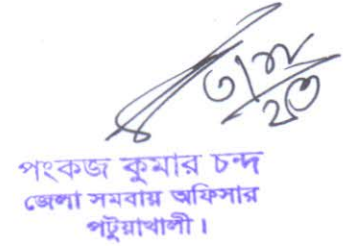 পংকজ কুমার চন্দ
জেলা সমবায় অফিসার
পটুয়াখালী।